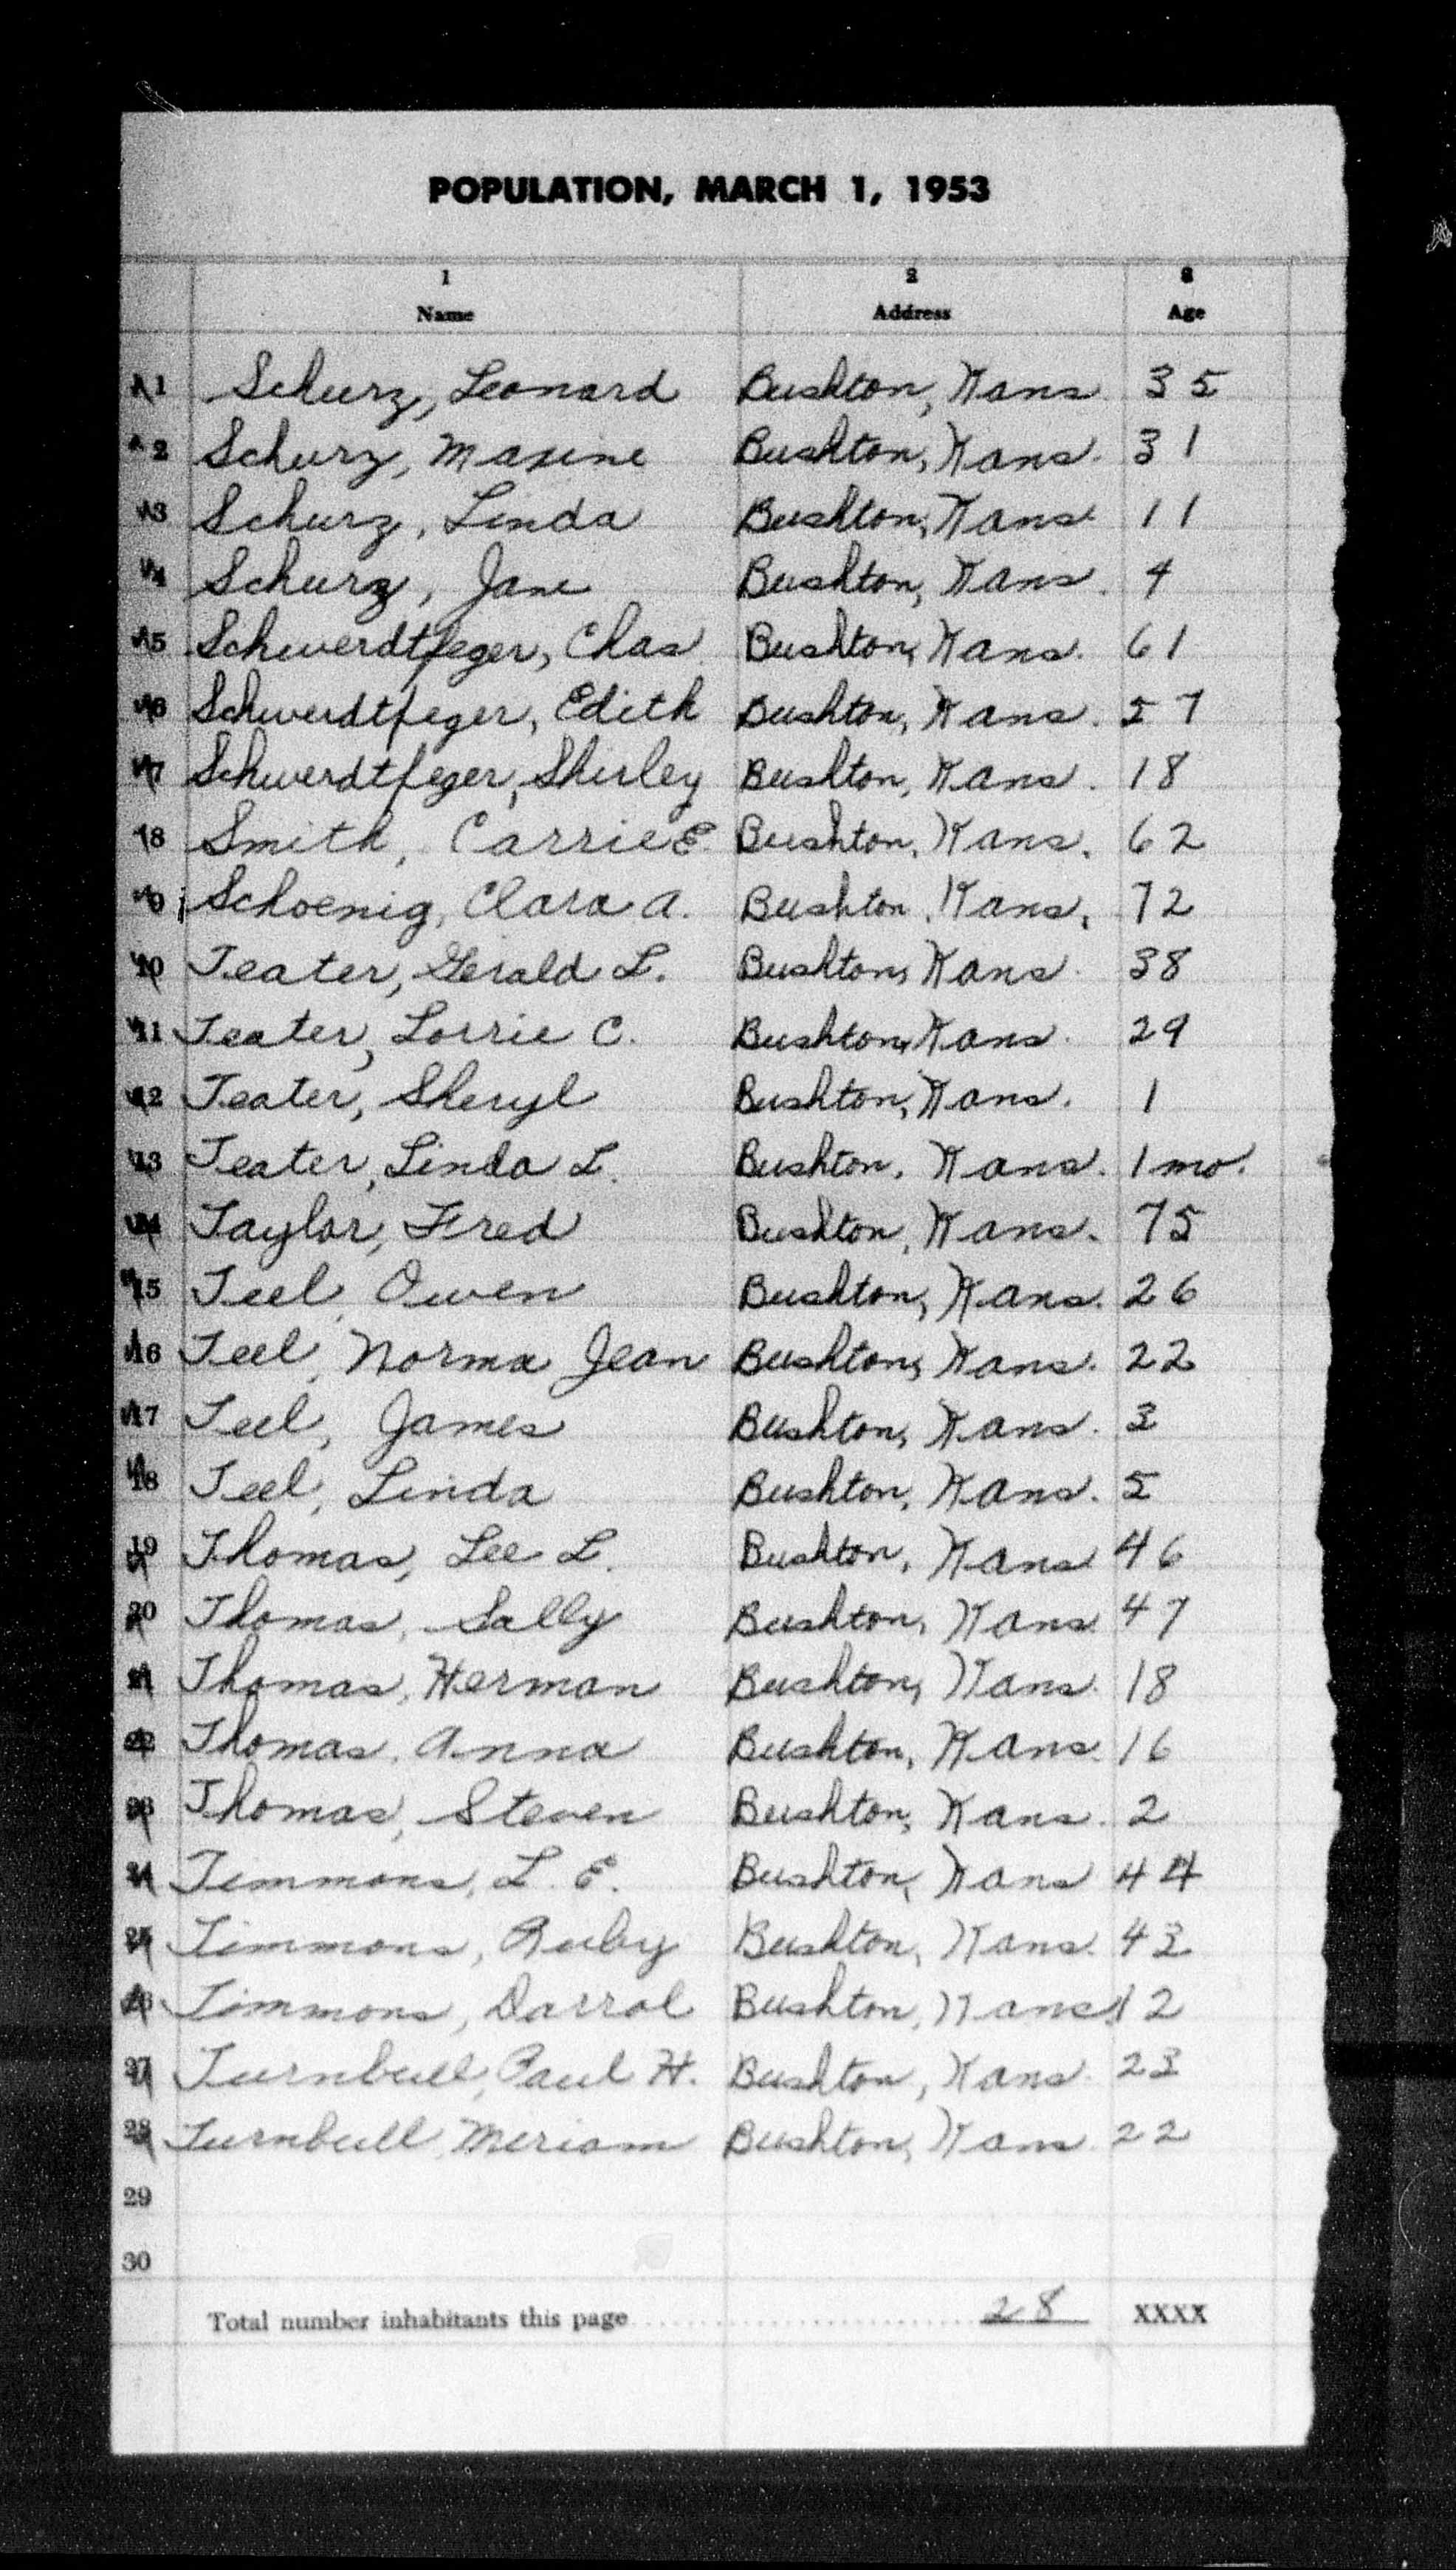 POPULATION, MARCH 1, 1953
1 2 3
Name Address Age
1 Schurz, Leonard Bushton, Kans. 35
2 Schurz, Maxine Bushton, Kans. 31
3 Schurz, Linda Bushton, Kans. 11
4 Schurz, Jane Bushton, Kans. 4
5 Schwerdtfeger, Chas. Bushton, Kans. 61
6 Schwerdtfeger, Edith Bushton, Kans. 57
7 Schwerdtfeger, Shirley Bushton, Kans. 18
8 Smith, Carrie E. Bushton, Kans. 62
9 Schoenig, Clara A. Bushton, Kans. 72
10 Teater, Gerald L. Bushton, Kans. 38
11 Teater, Lorrie C. Bushton, Kans. 29
12 Teater, Sheryl Bushton, Kans. 1
13 Teater, Linda L. Bushton, Kans. 1 mo.
14 Taylor, Fred Bushton, Kans. 75
15 Teel, Owen Bushton, Kans. 26
16 Teel, Norma Jean Bushton, Kans. 22
17 Teel, James Bushton, Kans. 3
18 Teel, Linda Bushton, Kans. 5
19 Thomas, Lee L. Bushton, Kans 46
20 Thomas, Sally Bushton, Kans. 47
21 Thomas, Herman Bushton, Kans. 18
22 Thomas, Anna Bushton, Kans. 16
23 Thomas, Steven Bushton, Kans. 2
24 Timmons, L. E. Bushton, Kans 44
25 Timmons, Ruby Bushton, Kans. 43
26 Timmons, Darrol Bushton, Kans. 12
27 Turnbull, Paul H. Bushton, Kans. 23
28 Turnbull, Meriam Bushton, Kans. 22
29
30
Total number inhabitants this page 28 XXXX